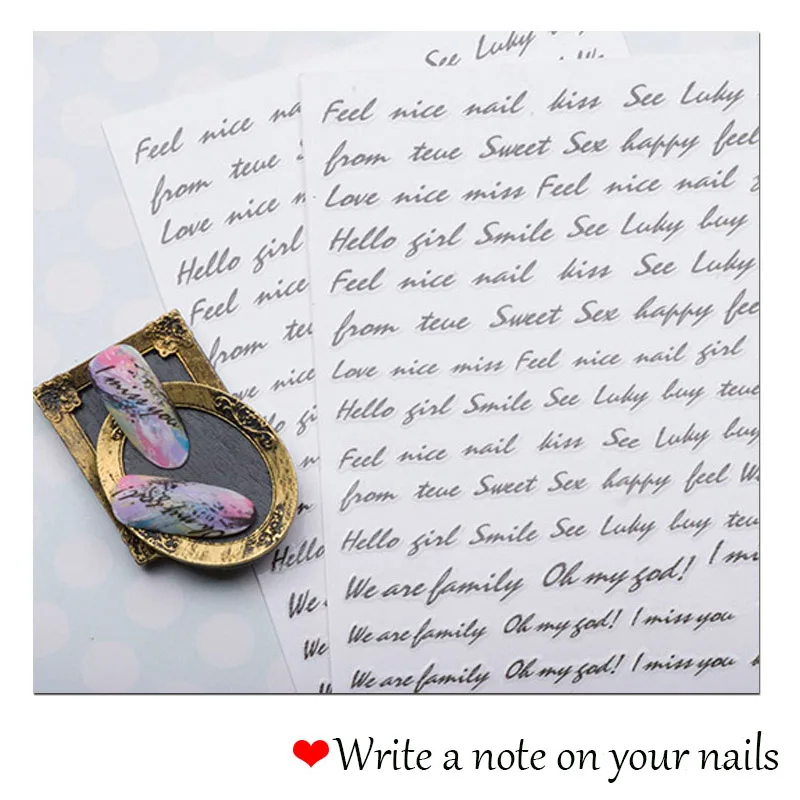 See Luky
Feel nice na
from teue
Love nice
Hello girl
Feel nice
from
nice
We
Feel nice nail kiss See Luky
from teue Sweet Sex happy feel
Love nice miss Feel nice nail
Hello girl Smile See Luky buy
Feel nice nail kiss See Luky
from teue Sweet Sex happy fee
Love nice miss Feel nice nail girl
Hello girl Smile See Luky buy teue
Feel nice nail kiss See Luky buy
from teue Sweet Sex happy feel W
Hello girl Smile See Luky buy teu
We are family Oh my god! I mi
We are family Oh my god! I miss you
We are family Oh my god! I miss you
Hello
We
We
I miss you
Write a note on your nails